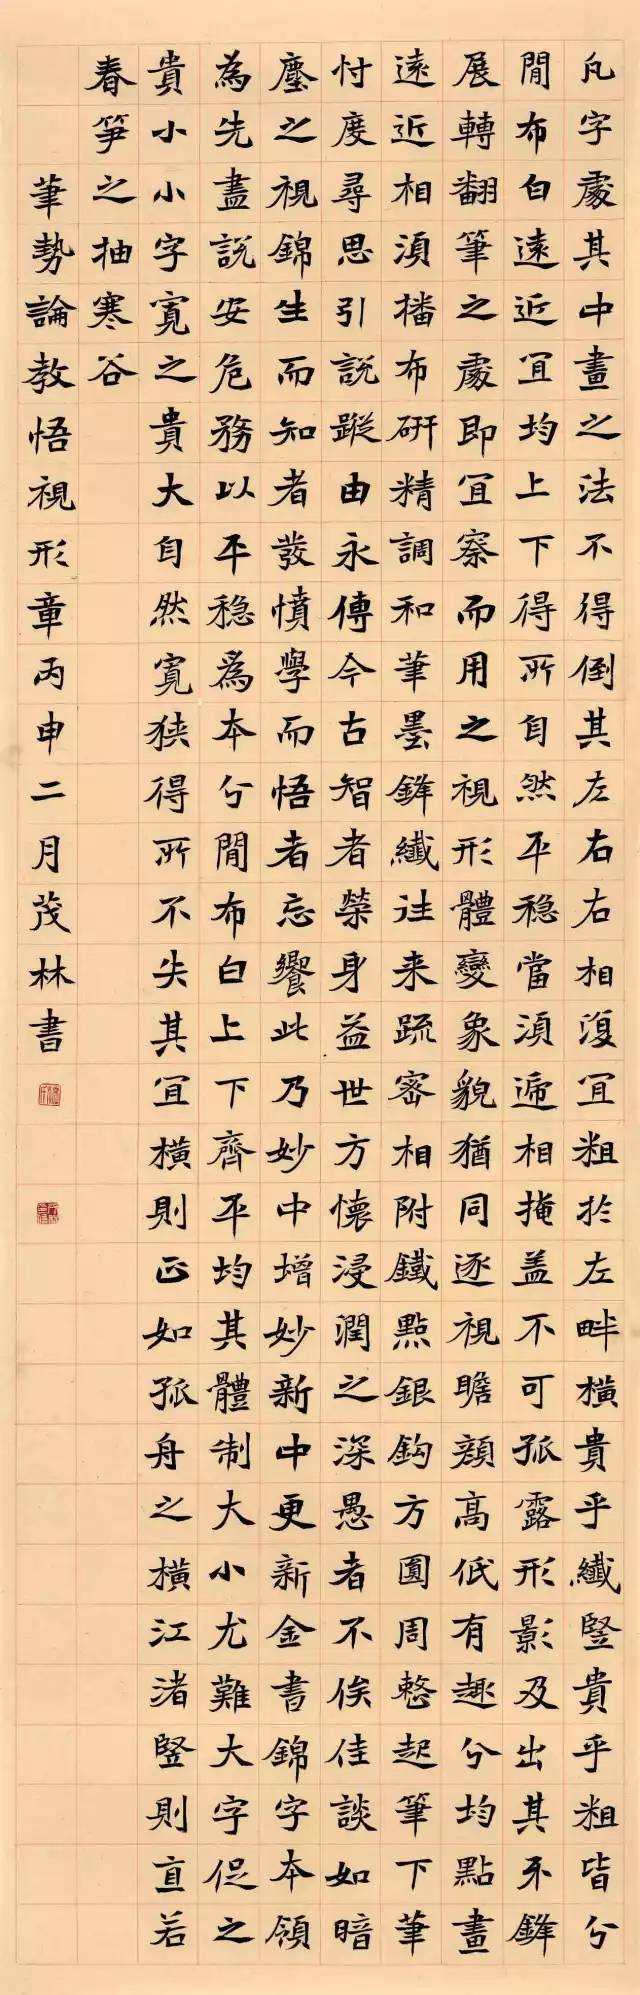 凡字處其中畫之法不得倒其左右右相復宜粗於左畔橫貴乎纖竪貴乎粗皆分
間布白遠近宜均上下得所自然平稳當須遞相掩盖不可孤露形影及出其牙鋒
展轉翻筆之處即宜察而用之視形體變象貌猶同逐視瞻顏高低有趣分均點畫
遠近相須播布研精調和筆墨鋒纖往来疏密相附鐵點銀鈎方圓周整起筆下筆
忖度尋思引說蹤由永傳今古智者榮身益世方懷浸潤之深愚者不俟佳談如暗
塵之視錦生而知者發憤學而悟者忘饗此乃妙中增妙新中更新金書錦字本領
為先盡說安危務以平稳為本分間布白上下齊平均其體制大小尤難大字促之
貴小小字寬之貴大自然寬狭得所不失其宜橫則正如孤舟之橫江渚竪則直若
春笋之抽寒谷
筆勢論教悟視形章丙申二月茂林書